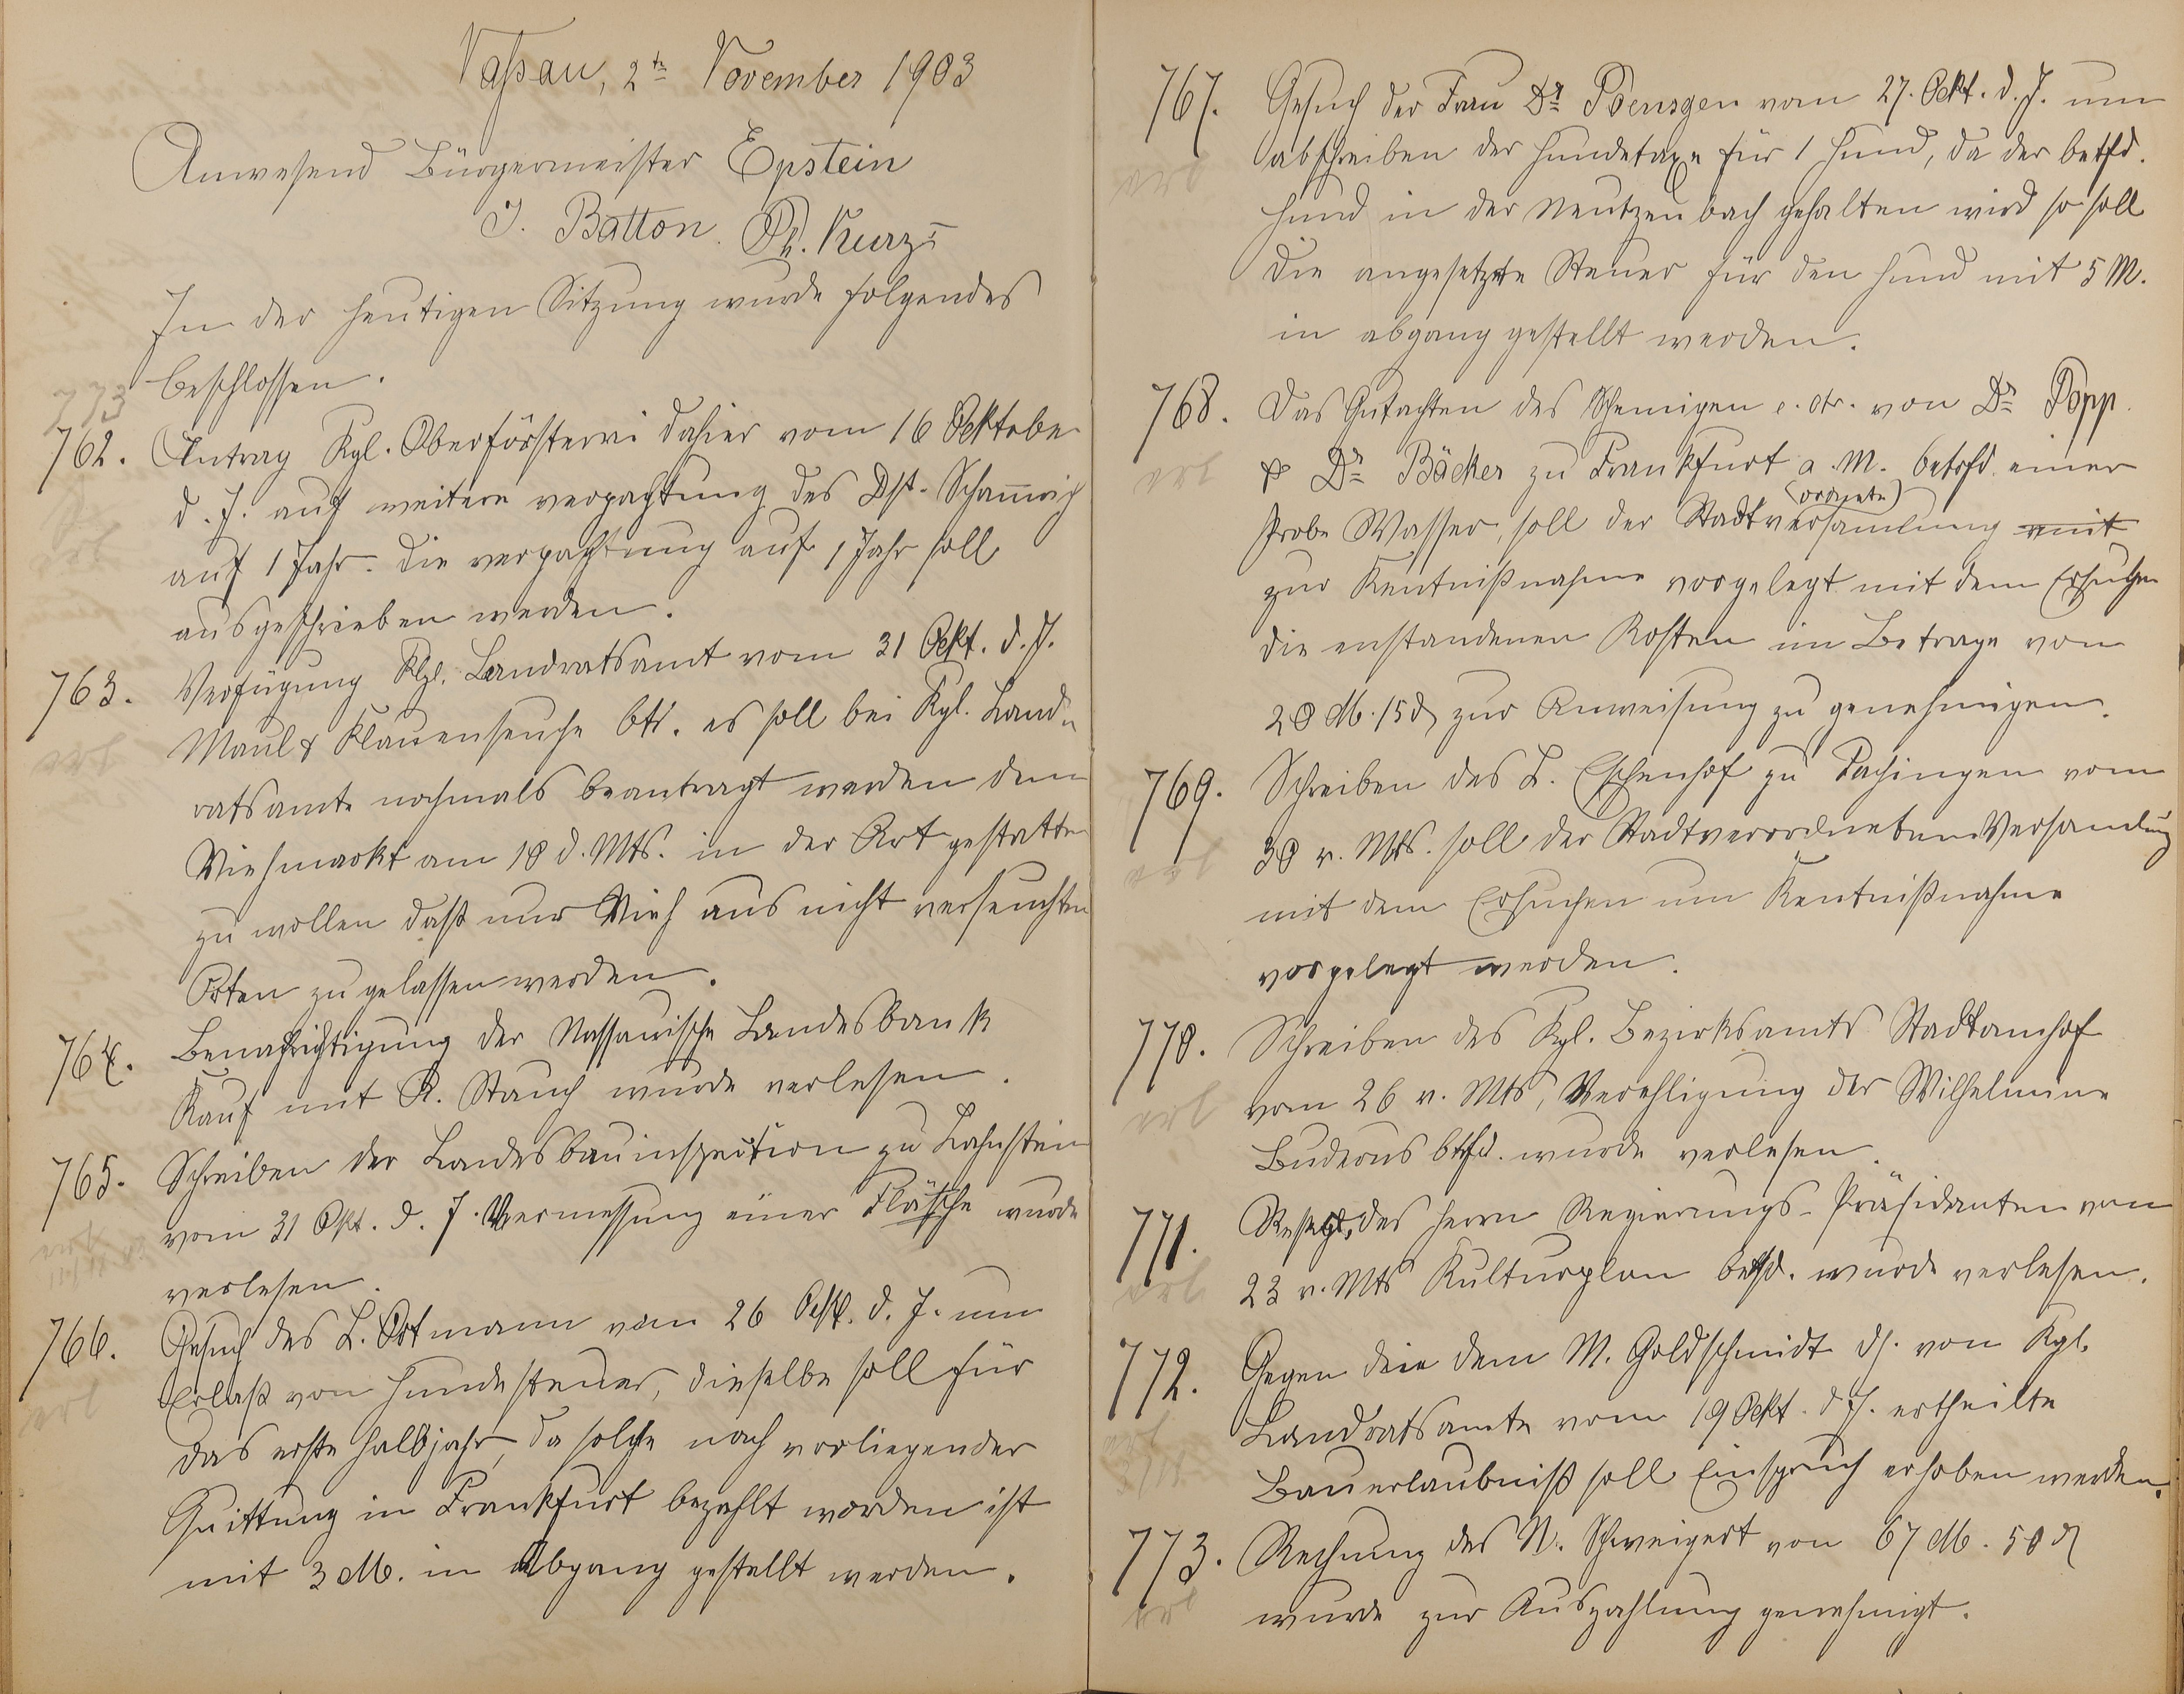 Naßau, 2tn November 1903
Anwesend Bürgermeister Epstein
J. Batton. Ph. Kurz
In der heutigen Sitzung wurde folgendes
beschlossen.
773
762. Antrag Kgl. Oberförsterei dahier vom 16 Oektober
d. J. auf weitere verpachtung des Dst.
auf 1 Jahr. die verpachtung auf 1 Jahr soll
ausgeschrieben werden.
erl
763. Verfügung Kgl. Landratsamt vom 31 Oekt. d. J.
Maul & Klauenseuche btr. es soll bei Kgl. Land„
ratsamte nochmals beantragt werden den
Viehmarkt am 10 d. Mts. in der Art gestatten
zu wollen daß nur Vieh aus nicht verseuchten
Orten zu gelassen werden.
erl
764. Benachrichtigung der Nassauische Landesbank
Kauf mit R. Stauch wurde verlesen.
765. Schreiben der Landesbauinspection zu Lahnstein
vom 31 Okt. d. J. Vermessung einer Fläsche wurde
verlesen.
766. Gesuch des L. Ortmann vom 26 Oekt. d. J. um
Erlaß von Hundesteuer, dieselbe soll für
das erste Halbjahr, da solche nach vorliegender
Quittung in Frankfurt bezahlt worden ist
mit 3 M. in Abgang gestellt werden.
erl
767. Gesuch der Frau Dr Poensgen vom 27. Oekt. d. J. um
abschreiben der Hundetaxe für 1 Hund, da der betfd.
Hund in der Neutzenbach gehalten wird so soll
die angesetzte Steuer für den Hund mit 5 M.
in abgang gestellt werden.
erl
768. Das Gutachten des Chemiger e. ctr. von Dr Popp
& Dr Bäcker zu Frankfurt a. M. betrfd. einer
(ordnete)
Probe Wasser, soll der Stadtversamlung mit
zur Kentnißnahme vorgelegt mit dem Ersuchen
die enstandenen Kosten im Betrage von
20 M. 15 d zur Anweisung zu genehmigen.
erl
769. Schreiben des L. Eschenhof zu Fachingen vom
30 v. Mts. soll der Stadtverordneten Versamlung
mit dem Ersuchen um Kentnißnahme
vorgelegt werden.
erl
770. Schreiben des Kgl. Bezirksamts Stadtamhof
vom 26 v. Mts, Verehligung der Wilhelmine
Buderus btfd. wurde verlesen.
erl
771. des Herrn Regierungs-Präsidenten vom
23 v. Mts Kulturplan betfd. wurde verlesen.
erl
772. Gegen deie dem M. Goldschmidt ds. von Kgl.
Landratsamte vom 19 Oekt. d J. ertheilte
Bauerlaubniß soll Einspruch erhoben werden.
773. Rechnung des N. Schweigert von 67 M. 50 d
wurde zur Auszahlung genehmigt.
erl